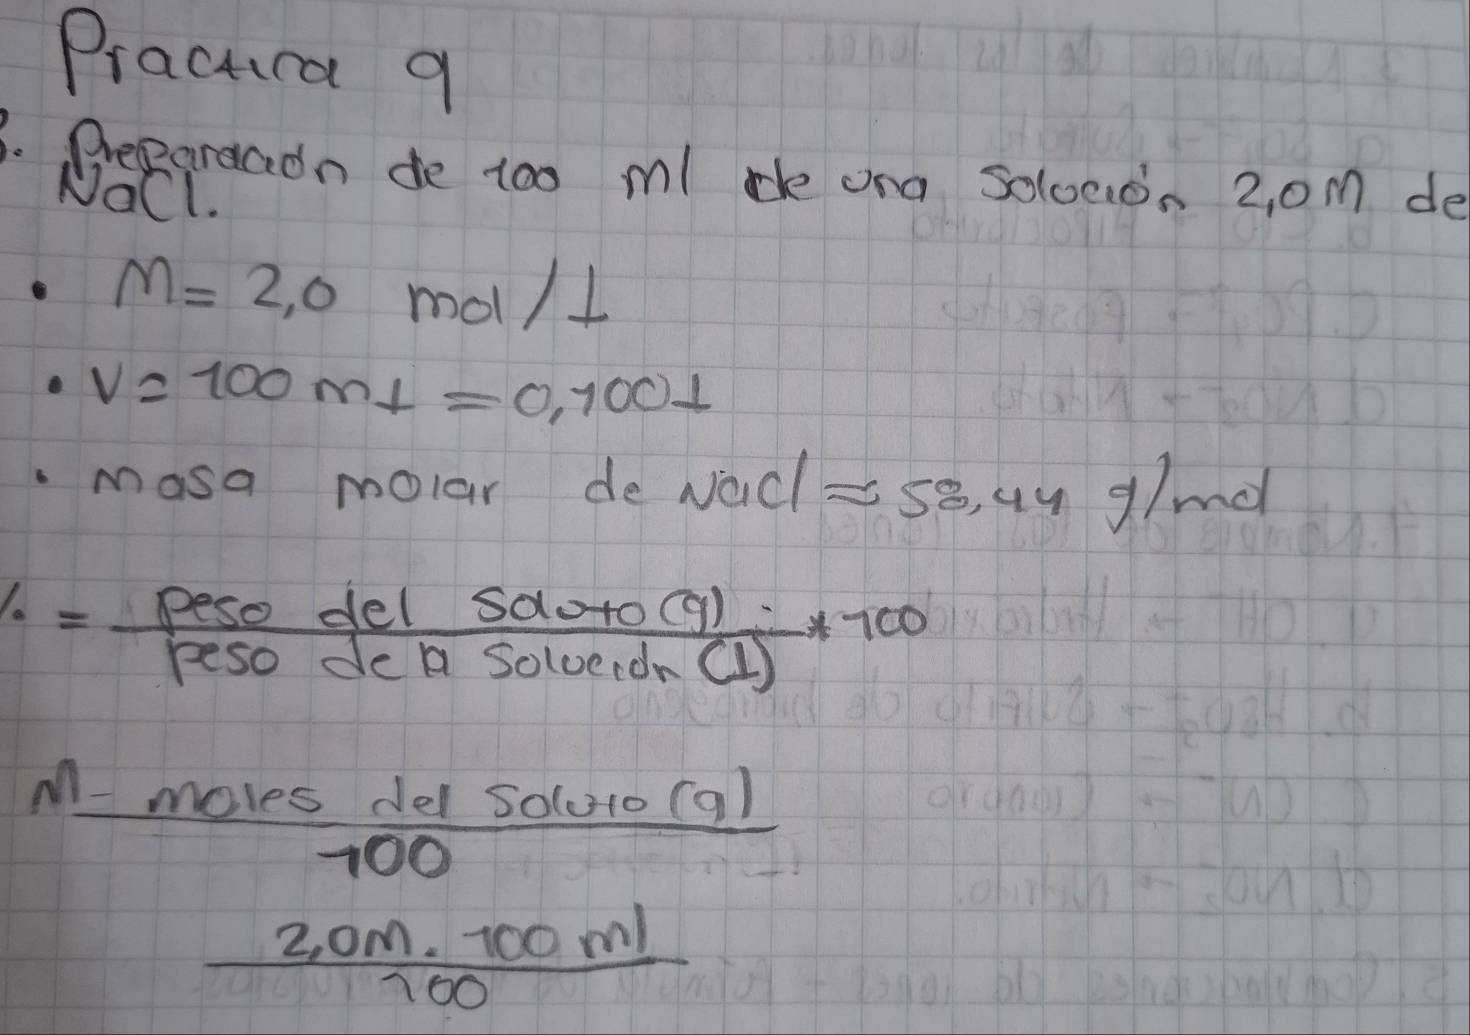 Practica 9
3. Preparación de 100 ml de una solución 2,0M de
NaCl.
• M = 2,0 mol/L
• V = 100 mL = 0,100L
• masa molar de NaCl ≈ 58,44 g/mol
%. = peso del soluto (g) ÷ * 100
peso de la solución (L)
M- moles del soluto (g)
100
2,0M. 100 ml
100